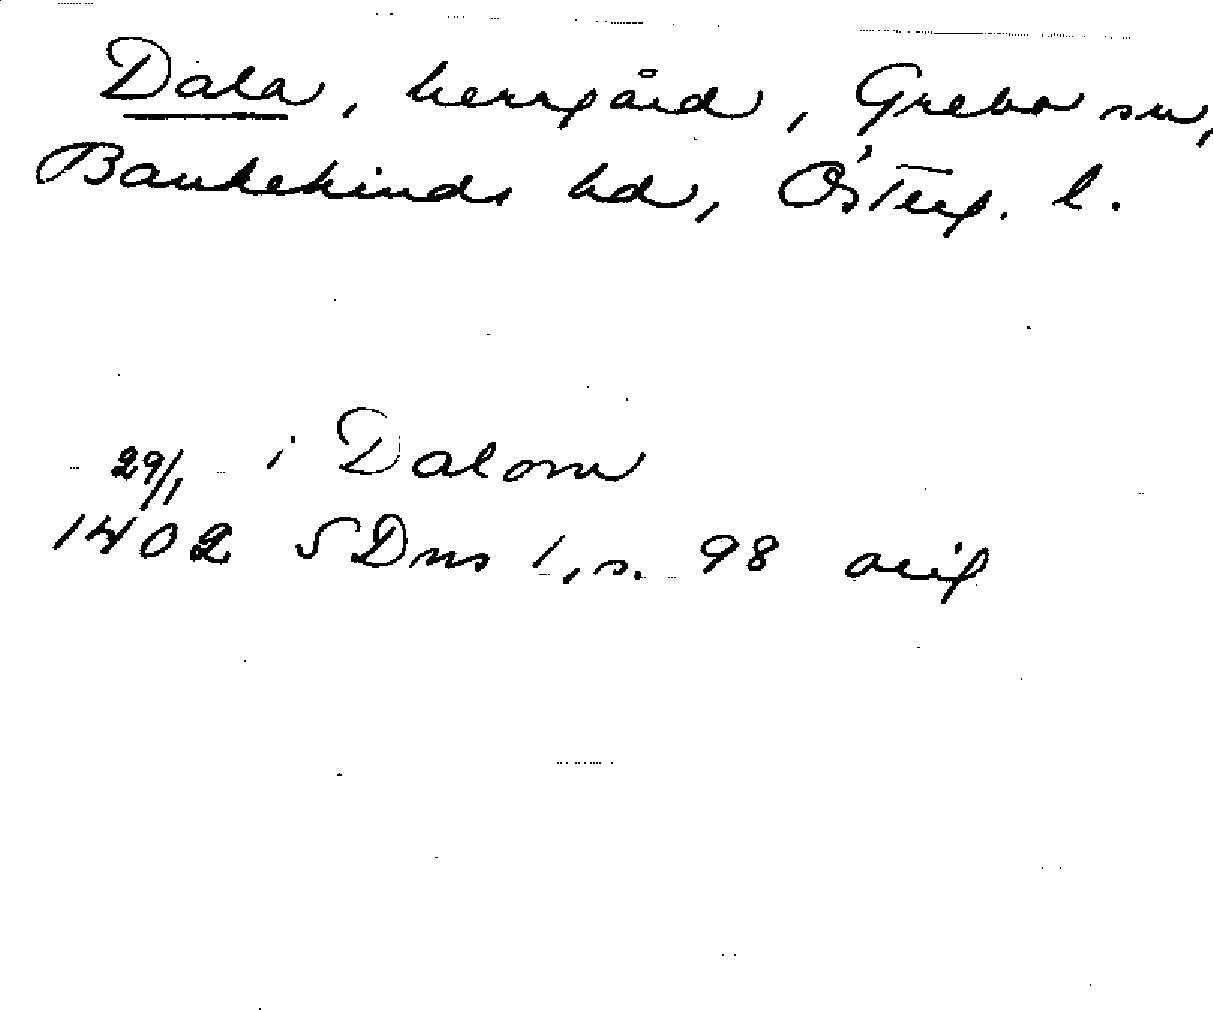 Dala, herrgård, Grebo sn,
Bankekinds hd, Österg. l.
29/1 i Dalom
1402 SDns 1, s. 98 orig